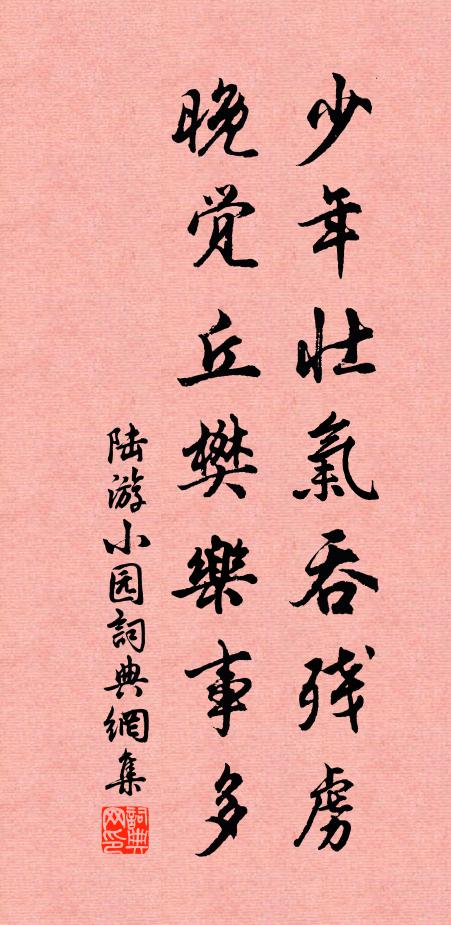 少年壮氣吞残虏
晚觉丘樊樂事多
陆游小园詞典網集
詞典網印